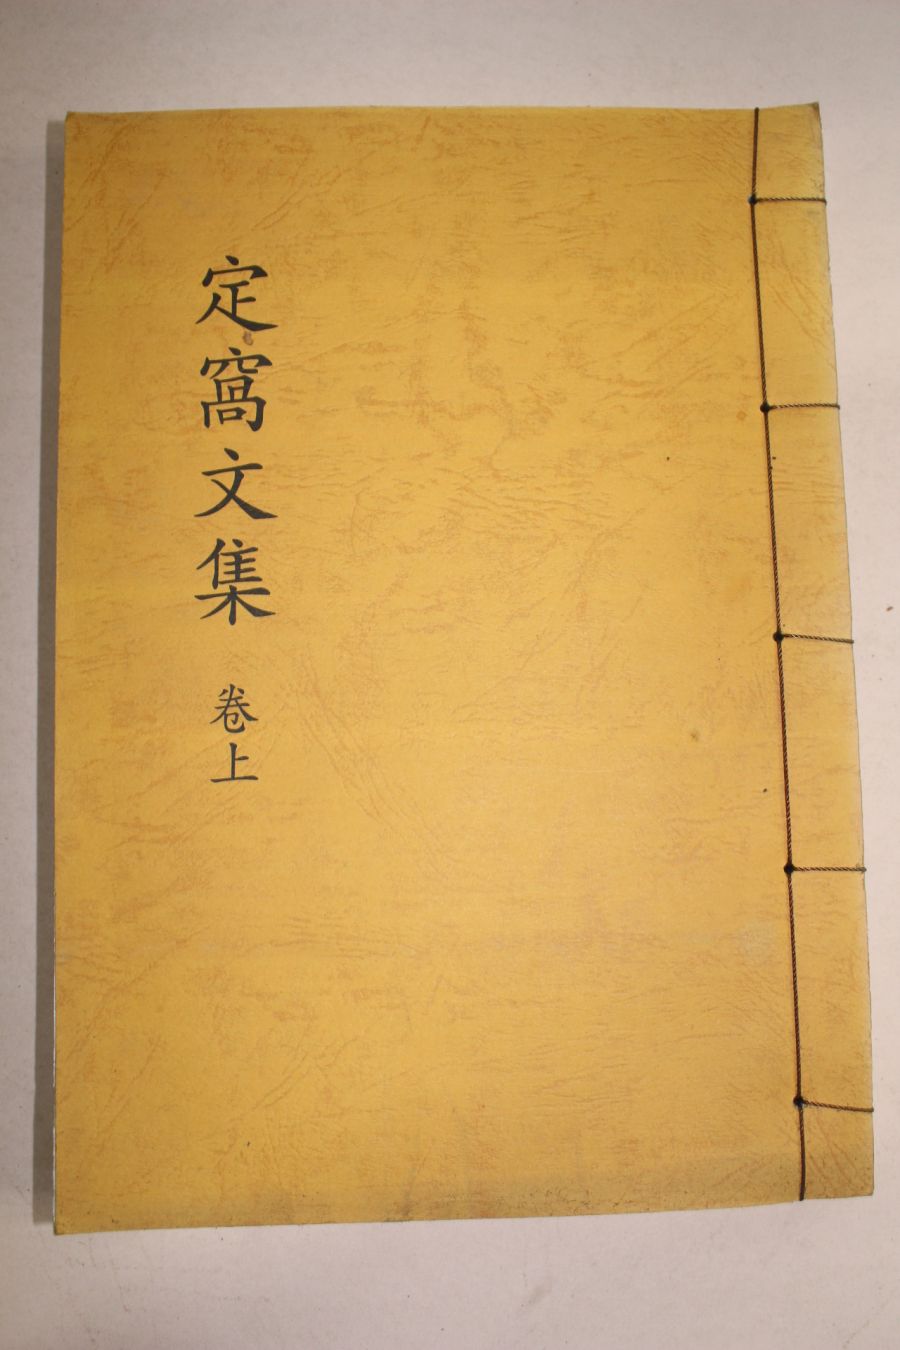 定窩文集 卷上